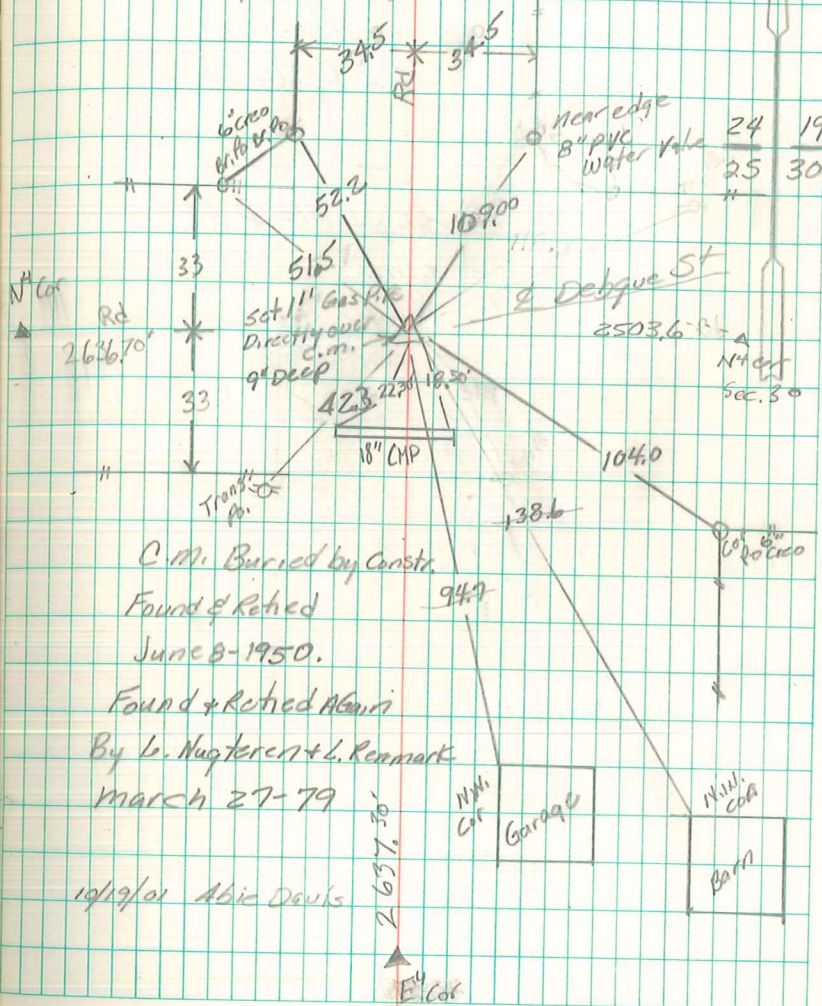 34.5 34.5
Rd
6" creo
Br. Po Br. Po
near edge
8" PVC
Water Valve
24 19
25 30
52.2
109.00
51.5
33
N4 Cor
Rd
2636.70'
Set 1" Gas Pipe
Directly over
C.M.
9" Deep
℄ Debque St
2503.6
N4 cor
Sec. 30
33
42.3
22.30'
18.50'
18" CMP
104.0
Trans.
Po.
138.6
Cor 6"
Po Creo
C.M. Buried by Constr.
94.7
Found & Retied
June 8-1950.
Found & Retied AGain
By L. Nugteren & L. Renmark
March 27-79
N.W.
Cor
Garage
N.W.
COR
Barn
2637.30'
10/19/01 Abie Davis
E4 Cor